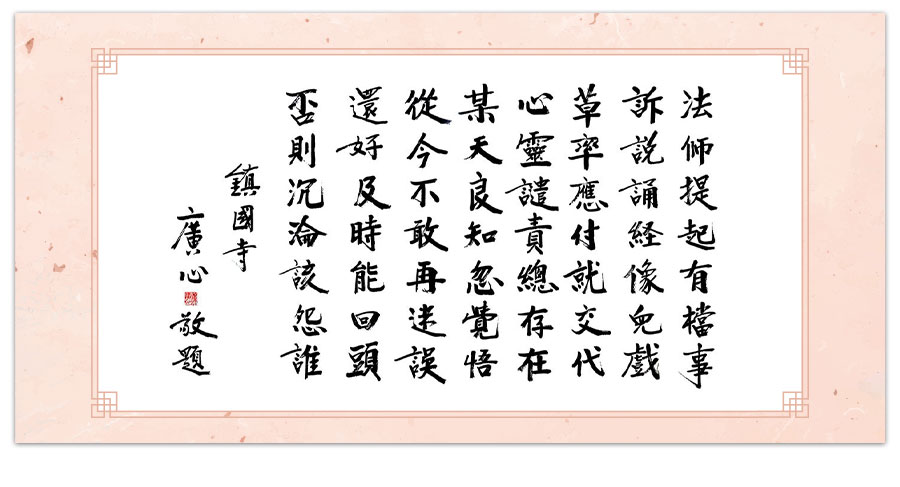 法师提起有檔事
訴說誦経像兒戲
草率應付就交代
心靈譴責總存在
某天良知忽覺悟
從今不敢再迷誤
還好及時能回頭
否則沉淪該怨誰
鎮國寺
廣心敬題